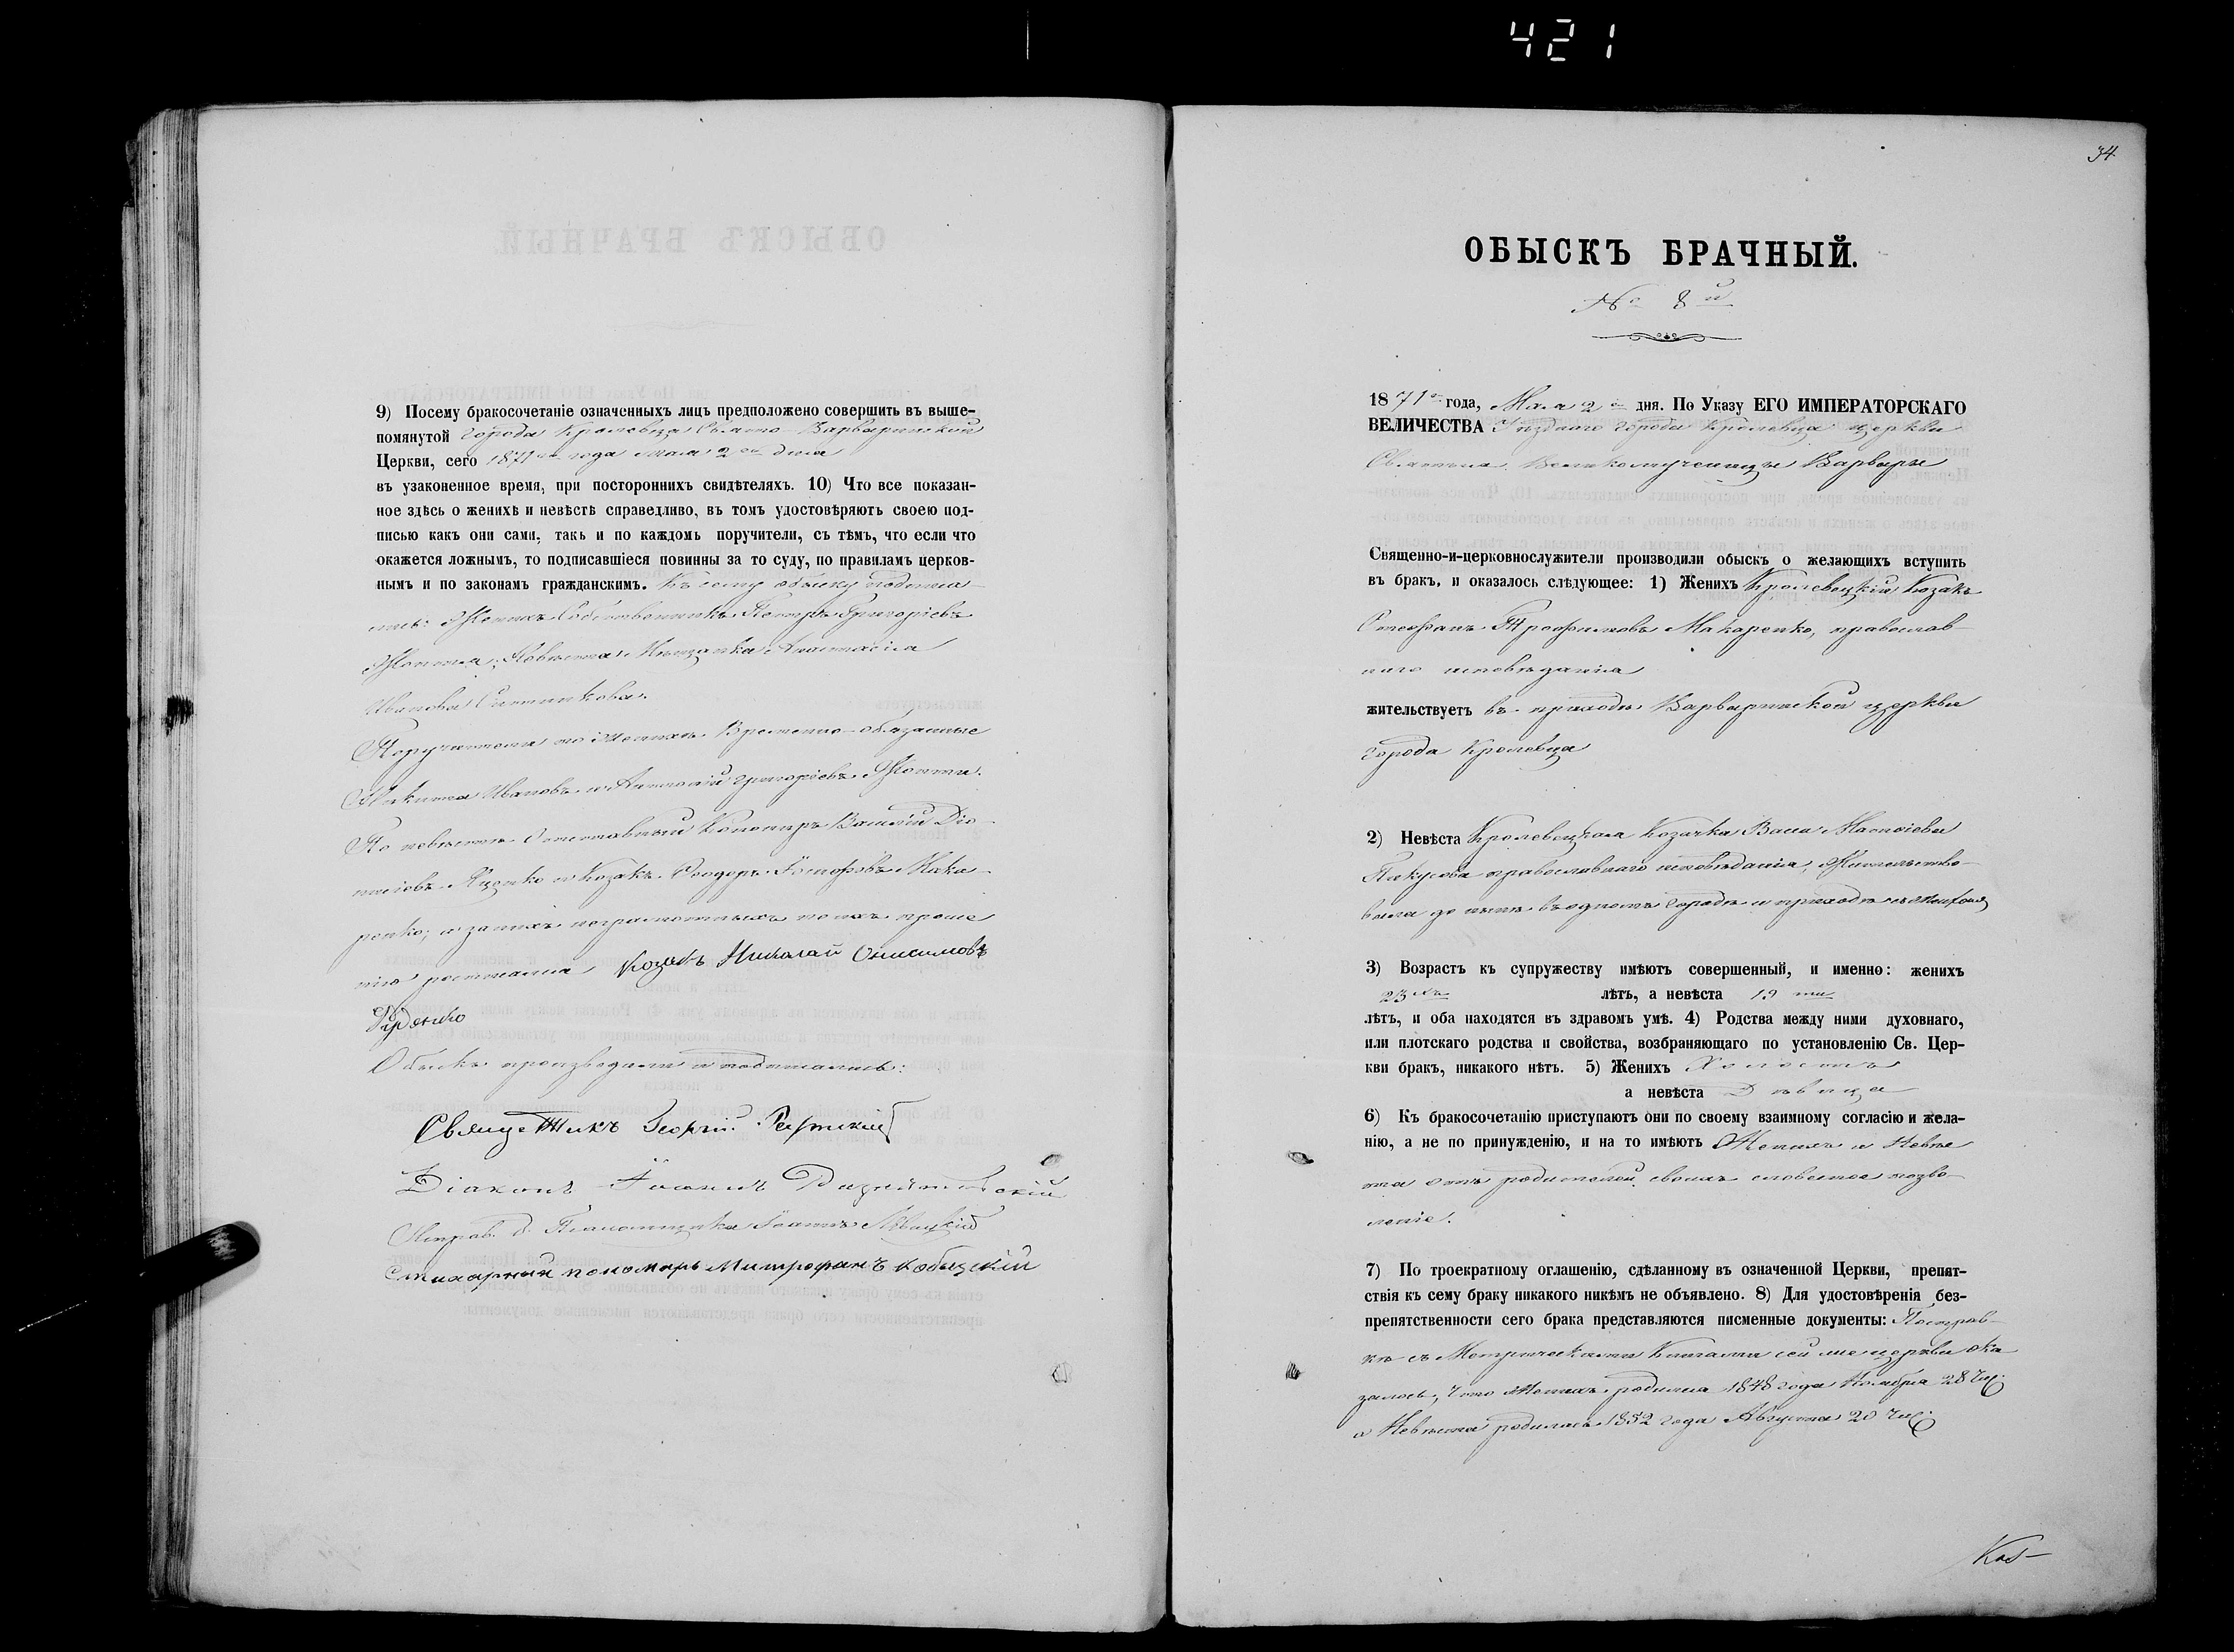 421
9) Посему бракосочетаніе означенныхъ лицъ предположено совершить въ выше-
помянутой города Кролевца Свято-Варваринской
Церкви, сего 1871го года Мая 2го дня
въ узаконенное время, при постороннихъ свидѣтеляхъ. 10) Что все показан-
ное здѣсь о женихѣ и невѣстѣ справедливо, въ томъ удостовѣряютъ своею под-
писью какъ они сами, такъ и по каждомъ поручители, съ тѣмъ, что если что
окажется ложнымъ, то подписавшіеся повинны за то суду, по правиламъ церков-
нымъ и по законамъ гражданскимъ. Къ сему обыску подписа-
лись: Женихъ Собственникъ Петръ Григоріевъ
Невѣста Мѣщанка Анастасія
Иванова
Поручители по женихѣ Временно-обязанные
Никита Ивановъ и Антоній Григоріевъ
По невѣстѣ Отставный Василій Діо-
нисіевъ Яценко и Козакъ Ѳеодоръ Іосифовъ Мака-
ренко; а за нихъ неграмотныхъ по ихъ проше
нію росписался Козакъ Николай Онисимовъ
Руденко
Обыскъ производили и подписались:
Священникъ Георгій
Діаконъ Іоаннъ
Исправ. д. Псаломщика Іоаннъ Левицкій
Стихарный пономарь Митрофанъ Кобыцкій
34
ОБЫСКЪ БРАЧНЫЙ.
№ 8й
1871го года, Мая 2го дня. По Указу ЕГО ИМПЕРАТОРСКАГО
ВЕЛИЧЕСТВА Уѣзднаго города Кролевца церкви
Святыя Великомученицы Варвары
Священно-и-церковнослужители производили обыскъ о желающихъ вступить
въ бракъ, и оказалось слѣдующее: 1) Женихъ Кролевецкій Козакъ
Стефанъ Трофимовъ Макаренко, православ-
наго исповѣданія
жительствуетъ въ приходѣ Варваринской церкви
города Кролевца
2) Невѣста Кролевецкая Козачка Васса Матѳіева
Пикусова православнаго исповѣданія, Жительство-
вала до нынѣ въ одномъ городѣ и приходѣ съ женихомъ
3) Возрастъ къ супружеству имѣютъ совершенный, и именно: женихъ
23хъ лѣтъ, а невѣста 19ти
лѣтъ, и оба находятся въ здравомъ умѣ. 4) Родства между ними духовнаго,
или плотскаго родства и свойства, возбраняющаго по установленію Св. Цер-
кви бракъ, никакого нѣтъ. 5) Женихъ Холостъ
а невѣста Дѣвица
6) Къ бракосочетанію приступаютъ они по своему взаимному согласію и жела-
нію, а не по принужденію, и на то имѣютъ Женихъ и Невѣс
та отъ родителей своихъ словесное позво-
леніе.
7) По троекратному оглашенію, сдѣланному въ означенной Церкви, препят-
ствія къ сему браку никакого никѣмъ не объявлено. 8) Для удостовѣренія без-
препятственности сего брака представляются писменные документы: По справ-
кѣ съ Метрическими Книгами сей же церкви ока
залось, что Женихъ родился 1848 года Ноября 28 чис:
а Невѣста родилась 1852 года Августа 20 чис:
Коб-